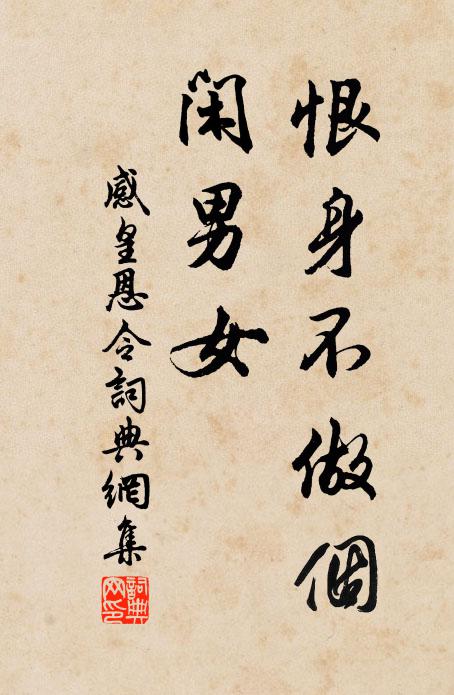 恨身不做個
閑男女
感皇恩令詞典網集
詞典網印